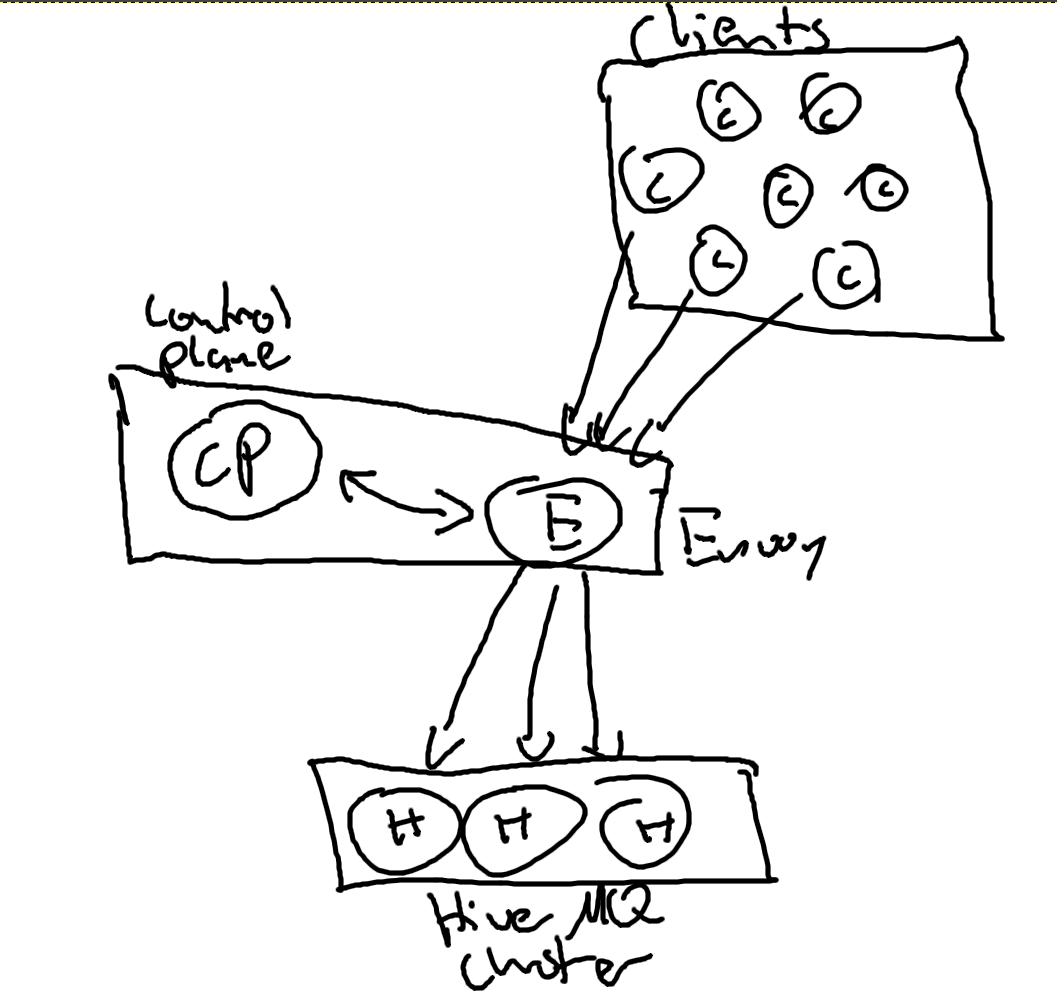 Clients
C C
C C C
C C
Control
plane
CP
E
Envoy
H H H
Hive MQ
cluster